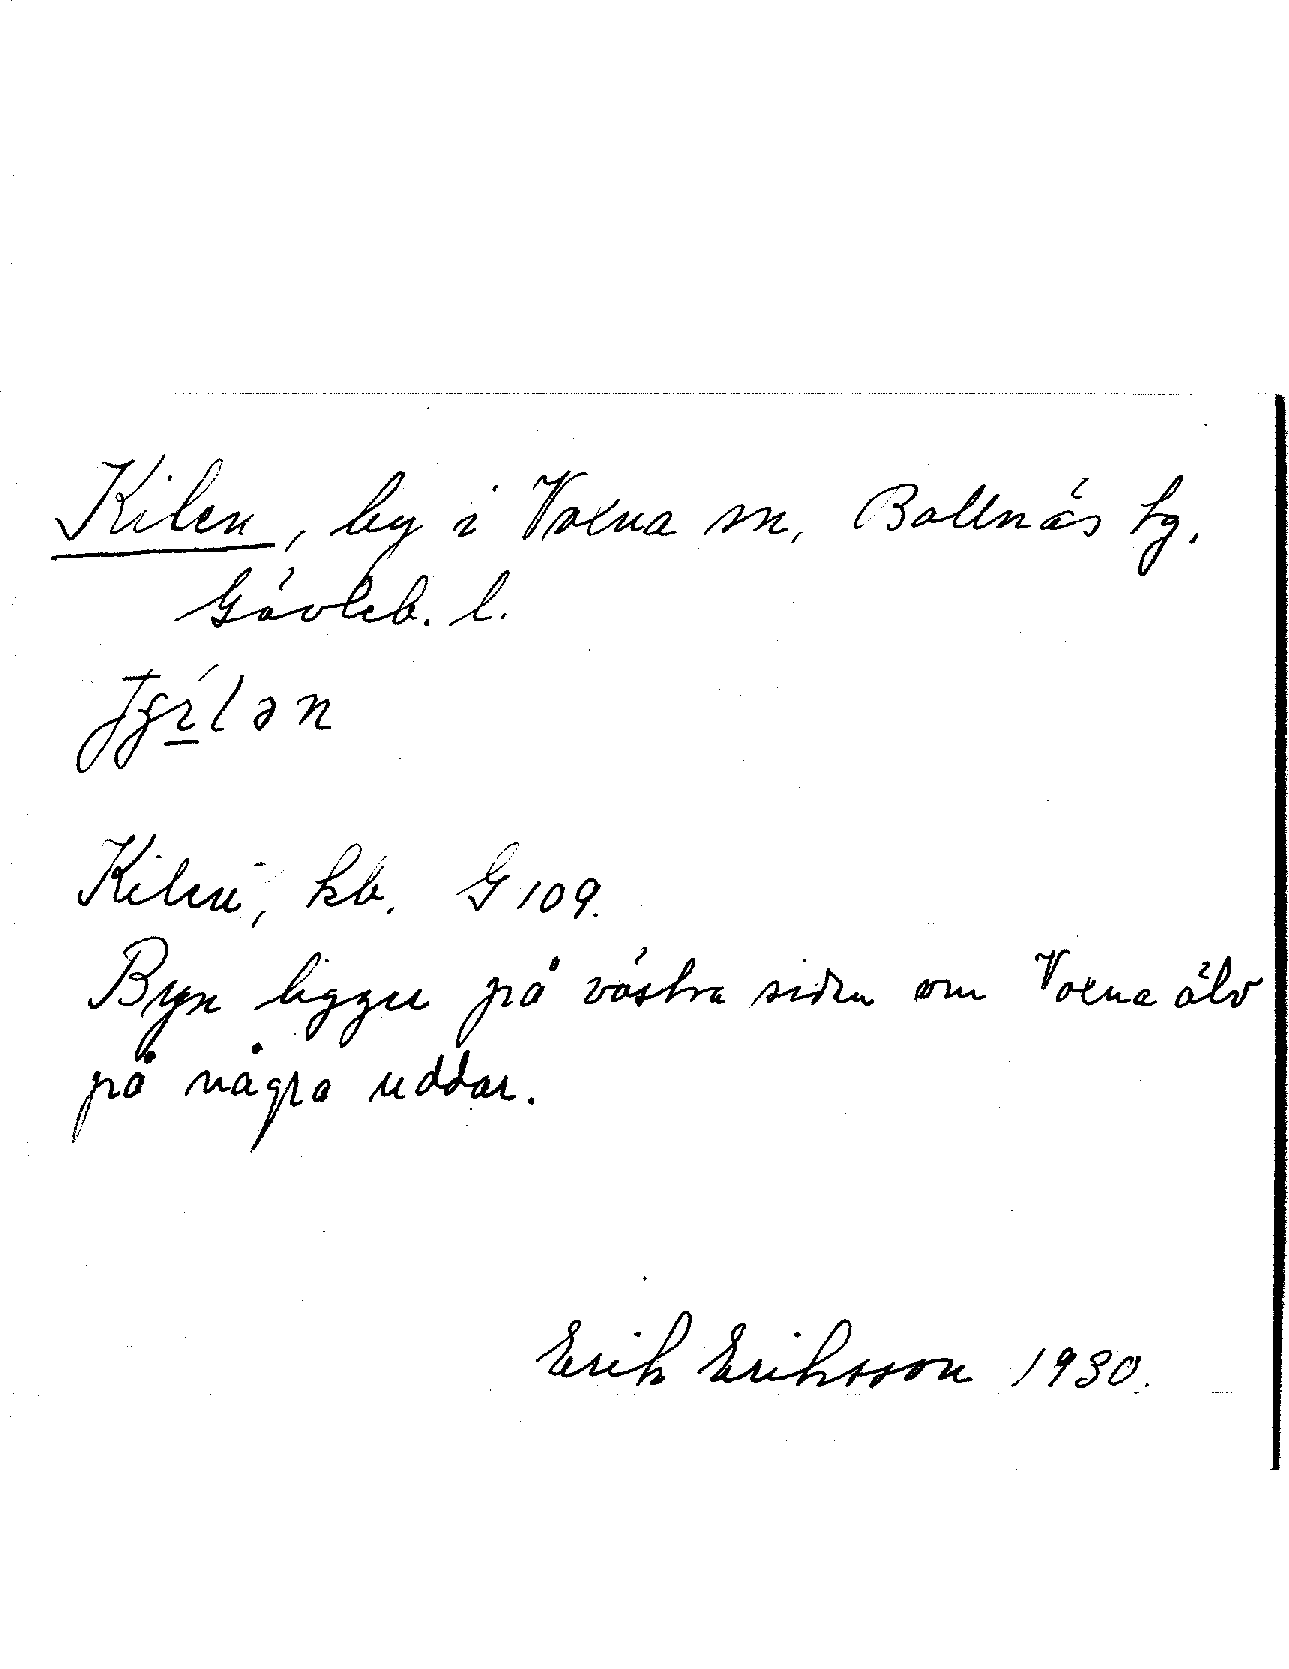 Kilen, by i Voxna sn, Bollnäs tg.
Gävleb. l.
Kilen, kb. G 109.
Byn ligger på västra sidan om Voxna älv
på några uddar.
Erik Eriksson 1930.